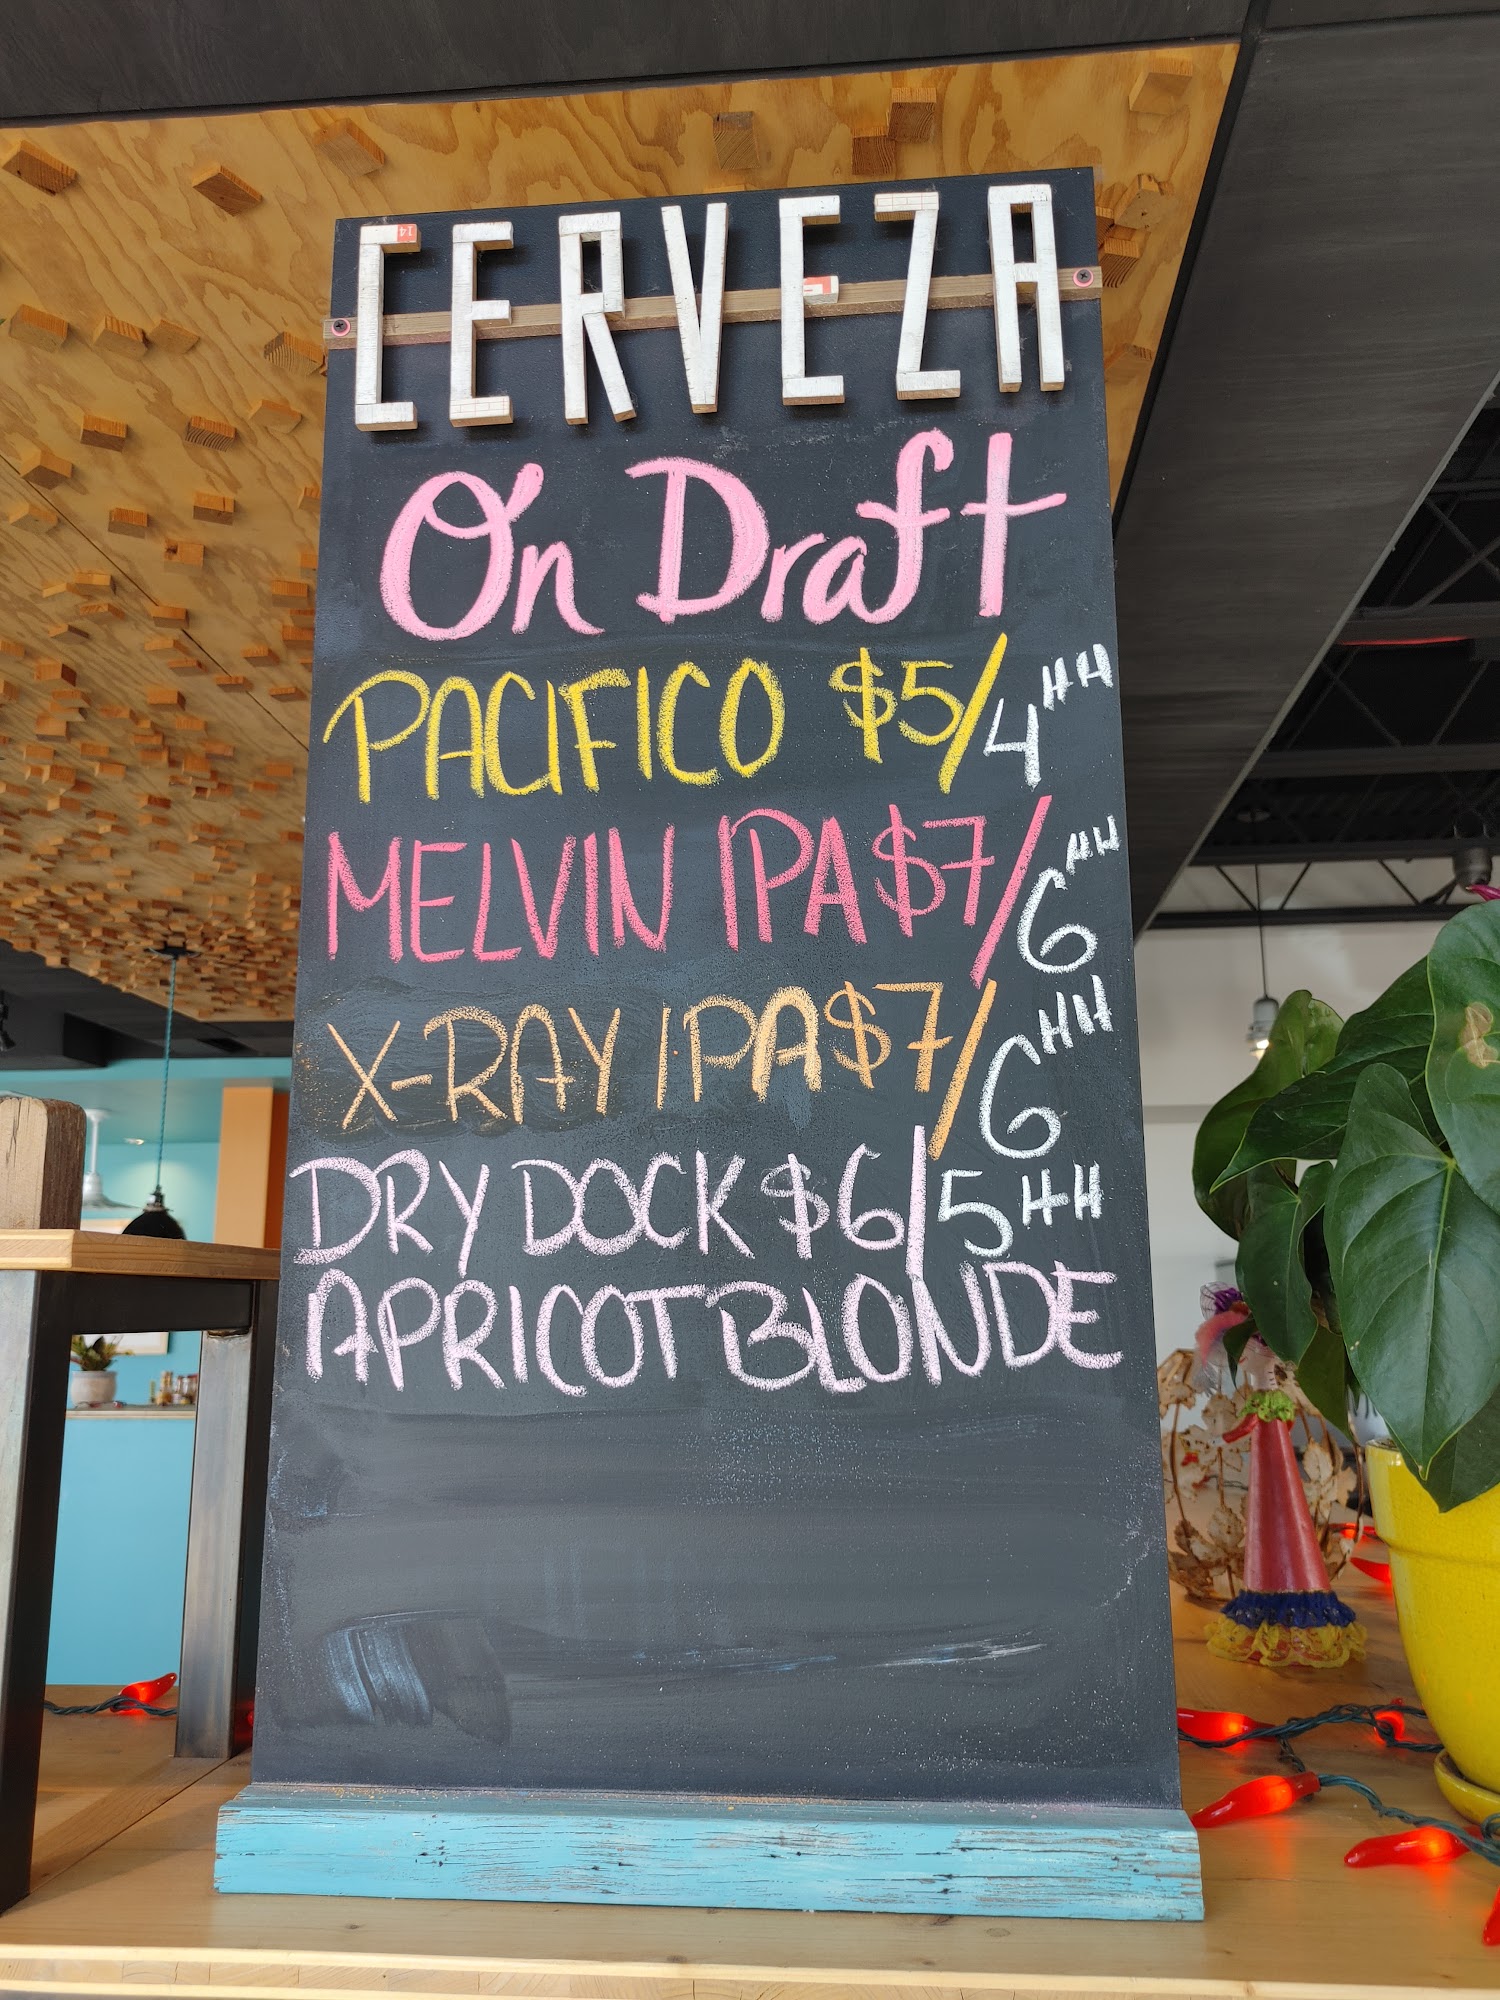 CERVEZA
On Draft
PACIFICO $5/4 HH
MELVIN IPA $7/6 HH
X-RAY IPA $7/6 HH
DRY DOCK $6/5 HH
APRICOT BLONDE